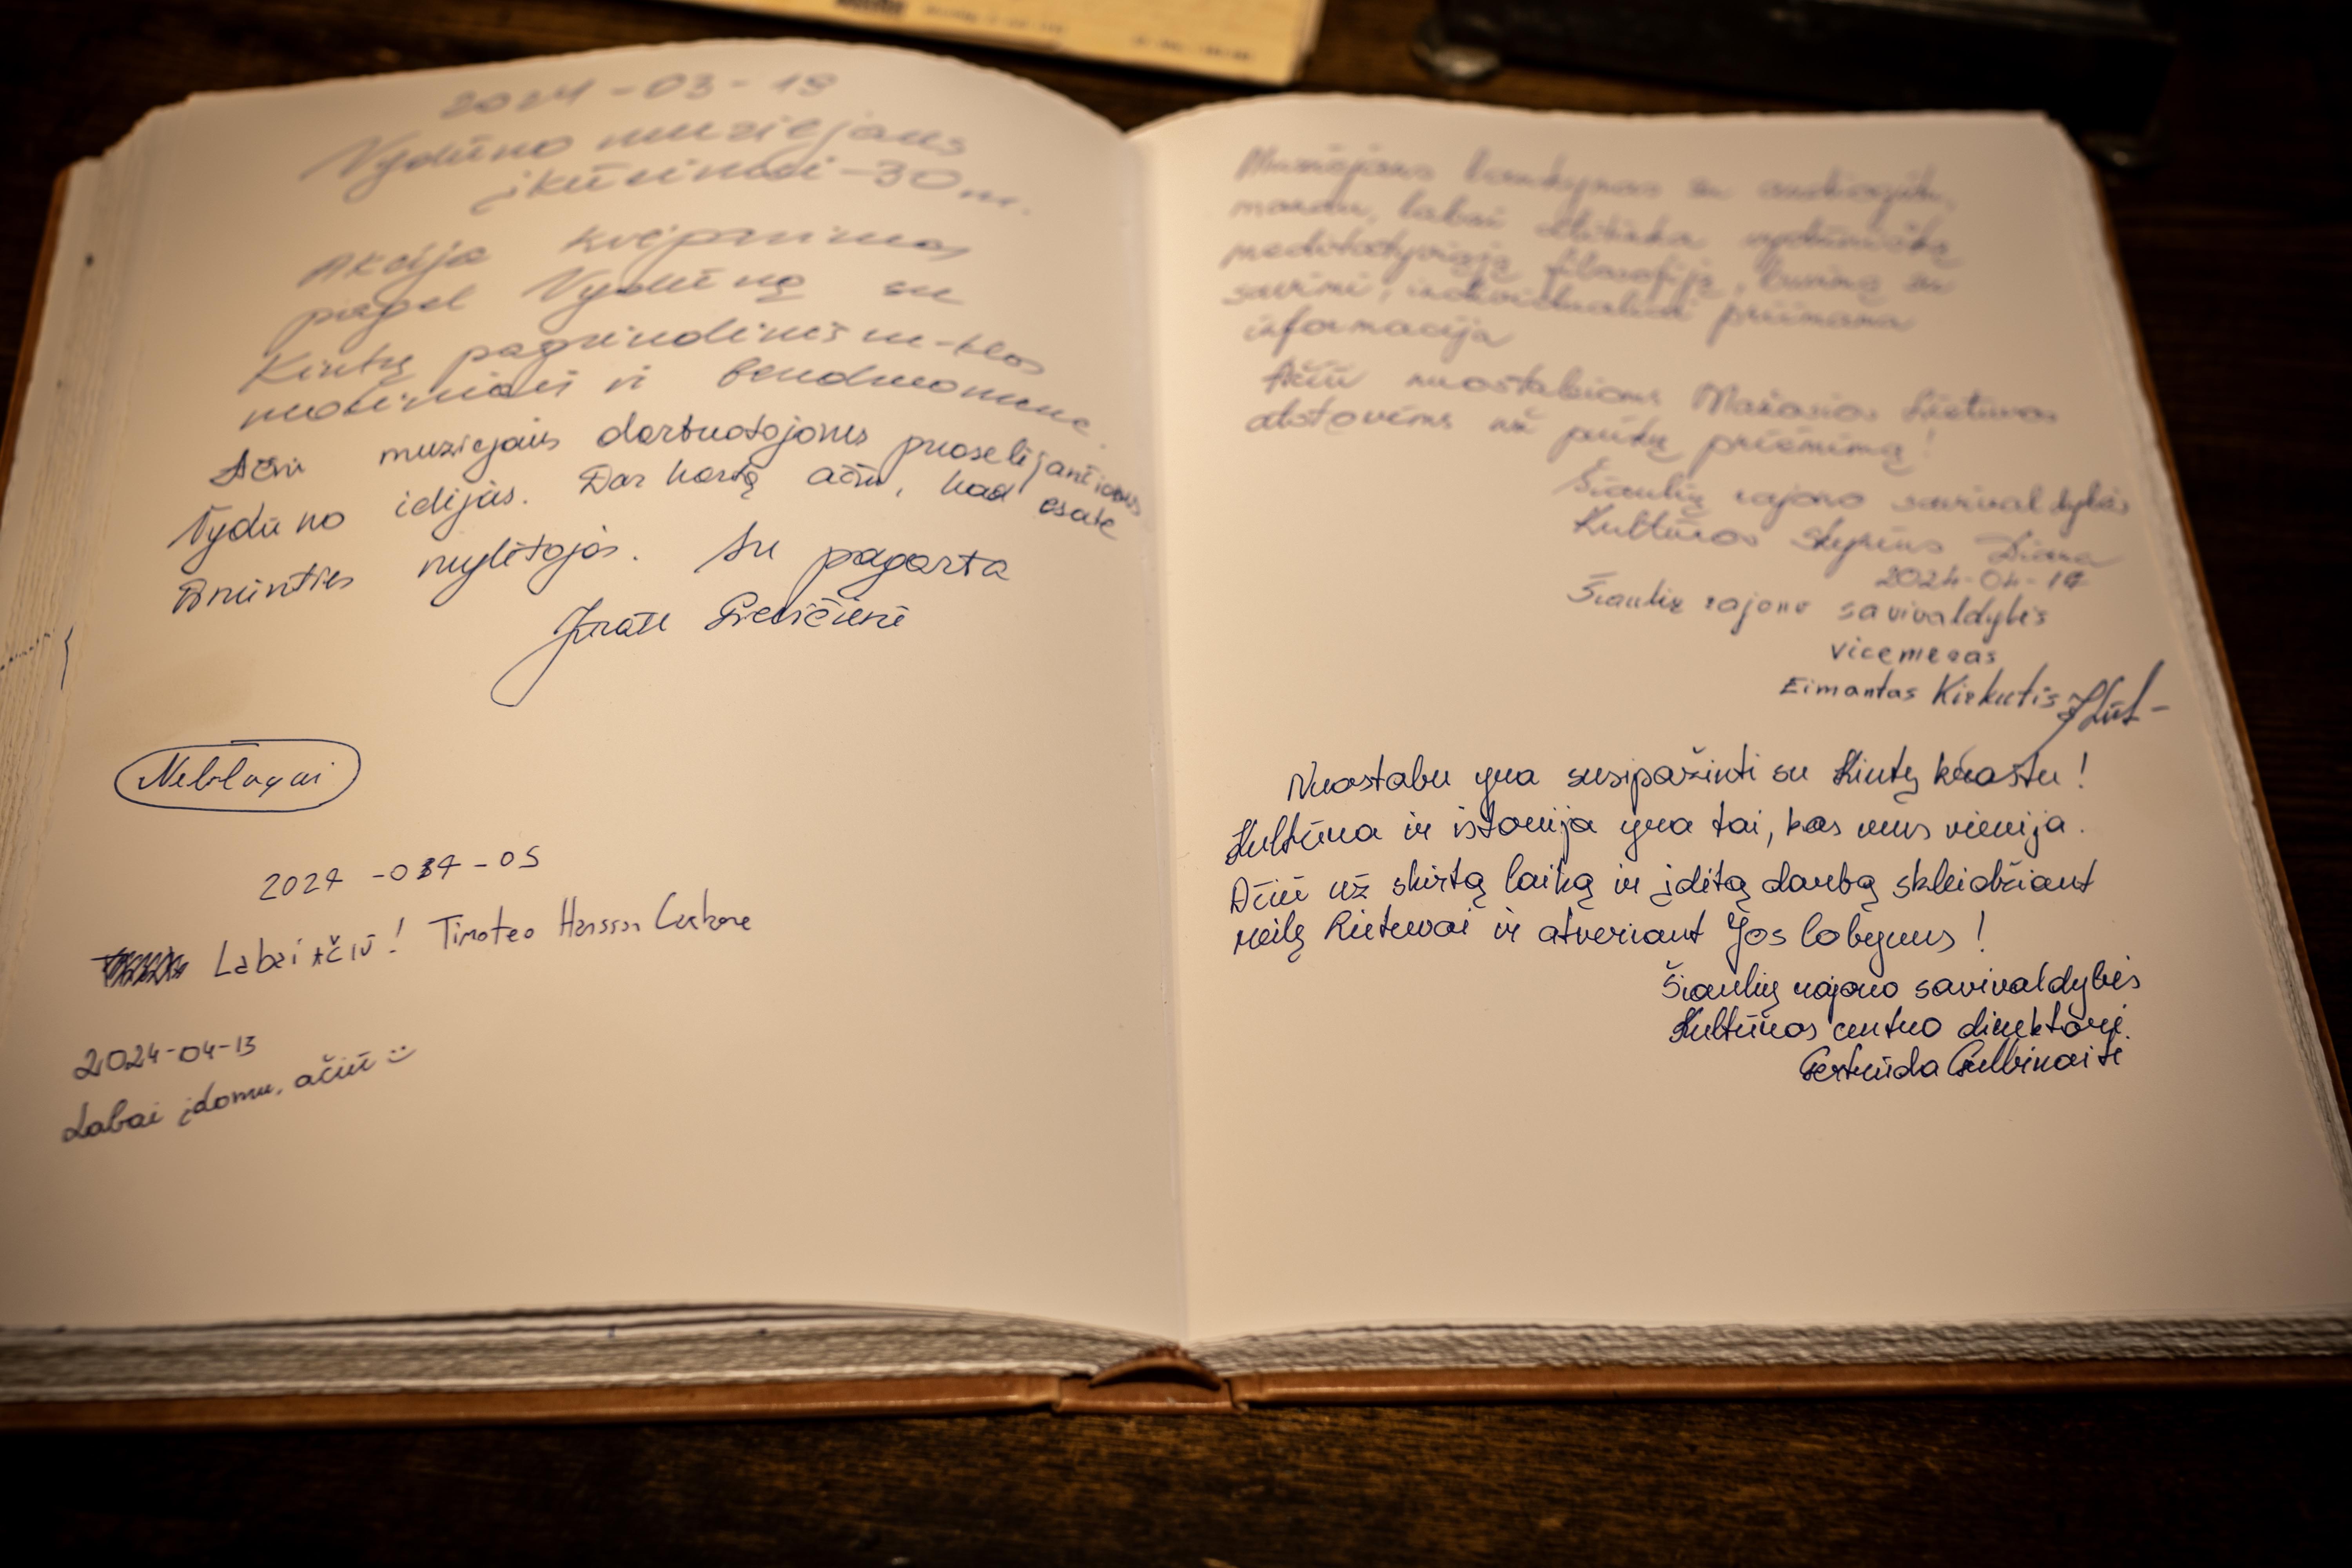 2024-03-19
Vydūno muziejaus
įkūrimui-30 m.
Akcija kvėpavimas
pagal Vydūną su
Kintų pagrindinės m-klos
mokiniais ir bendruomene.
Ačiū muziejaus darbuotojoms puoselėjančioms
Vydūno idėjas. Dar kartą ačiū, kad esate
išminties mylėtojos. Su pagarba
Jūratė
Neblogai
2024-04-05
Labai Ačiū! Timoteo
2024-04-13
Labai įdomu, ačiū :)
Muziejaus lankymas su audiogidu,
manau, labai atitinka vydūnišką
filosofiją, buvimą su
savimi, individualiai priimama
informacija
Ačiū nuostabioms Mažosios Lietuvos
atstovėms už puikų priėmimą!
Šiaulių rajono savivaldybės
Kultūros skyrius Diana
2024-04-
Šiaulių rajono savivaldybės
vicemeras
Eimantas Kirkutis
Nuostabu yra susipažinti su Kintų kraštu!
Kultūra ir istorija yra tai, kas mus vienija.
Ačiū už skirtą laiką ir įdėtą darbą skleidžiant
meilę Lietuvai ir atveriant Jos lobynus!
Šiaulių rajono savivaldybės
Kultūros centro direktorė
Gertrūda Gulbinaitė